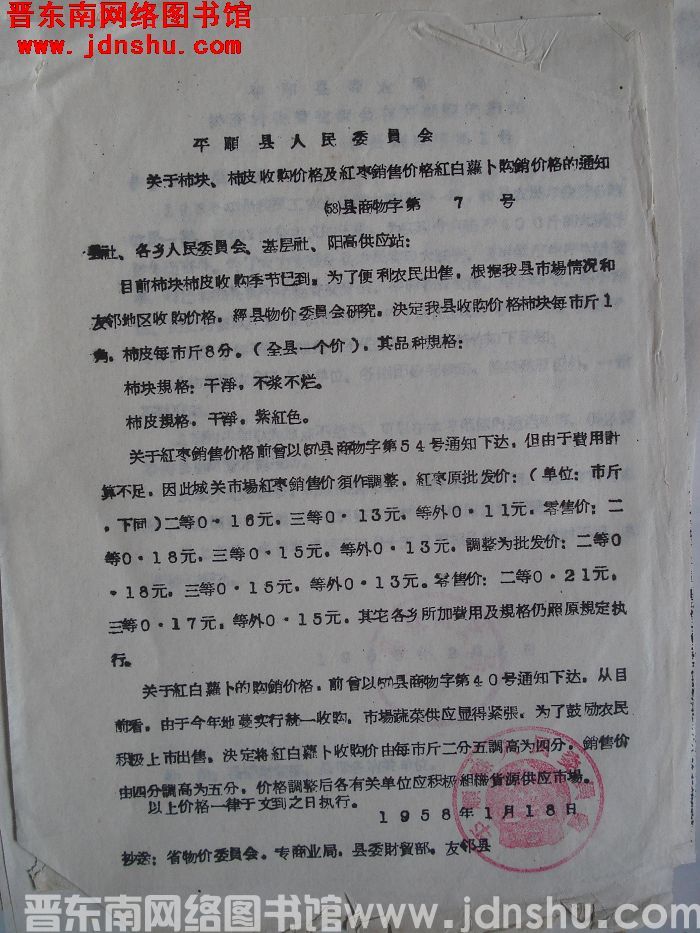 晋东南网络图书馆
www.jdnshu.com
平顺县人民委員会
关于柿块、柿皮收购价格及紅枣銷售价格紅白蘿卜购銷价格的通知
(58)县商物字第 7 号
县社、各乡人民委員会、基层社、阳高供应站：
目前柿块柿皮收购季节已到，为了便利农民出售，根据我县市場情况和
友邻地区收购价格，經县物价委員会研究，决定我县收购价格柿块每市斤1
角，柿皮每市斤8分。(全县一个价)，其品种規格：
柿块規格：干淨，不浆不烂。
柿皮規格，干淨，紫紅色。
关于紅枣銷售价格前曾以(57)县商物字第54号通知下达，但由于費用計
算不足，因此城关市場紅枣銷售价須作調整，紅枣原批发价：(单位：市斤
，下同)二等0·16元，三等0·13元，等外0·11元，零售价：二
等0·18元，三等0·15元，等外0·13元，調整为批发价：二等0
·18元，三等0·15元，等外0·13元。零售价：二等0·21元，
三等0·17元，等外0·15元，其它各乡所加費用及規格仍照原規定执
行。
关于紅白蘿卜的购銷价格，前曾以(57)县商物字第40号通知下达，从目
前看，由于今年地蔓实行統一收购，市場蔬菜供应显得紧张，为了鼓励农民
积极上市出售，决定将紅白蘿卜收购价由每市斤二分五調高为四分，銷售价
由四分調高为五分，价格調整后各有关单位应积极組織貨源供应市場。
以上价格一律于文到之日执行。
1958年1月18日
抄送：省物价委員会，专商业局，县委財貿部，友邻县
晋东南网络图书馆 www.jdnshu.com